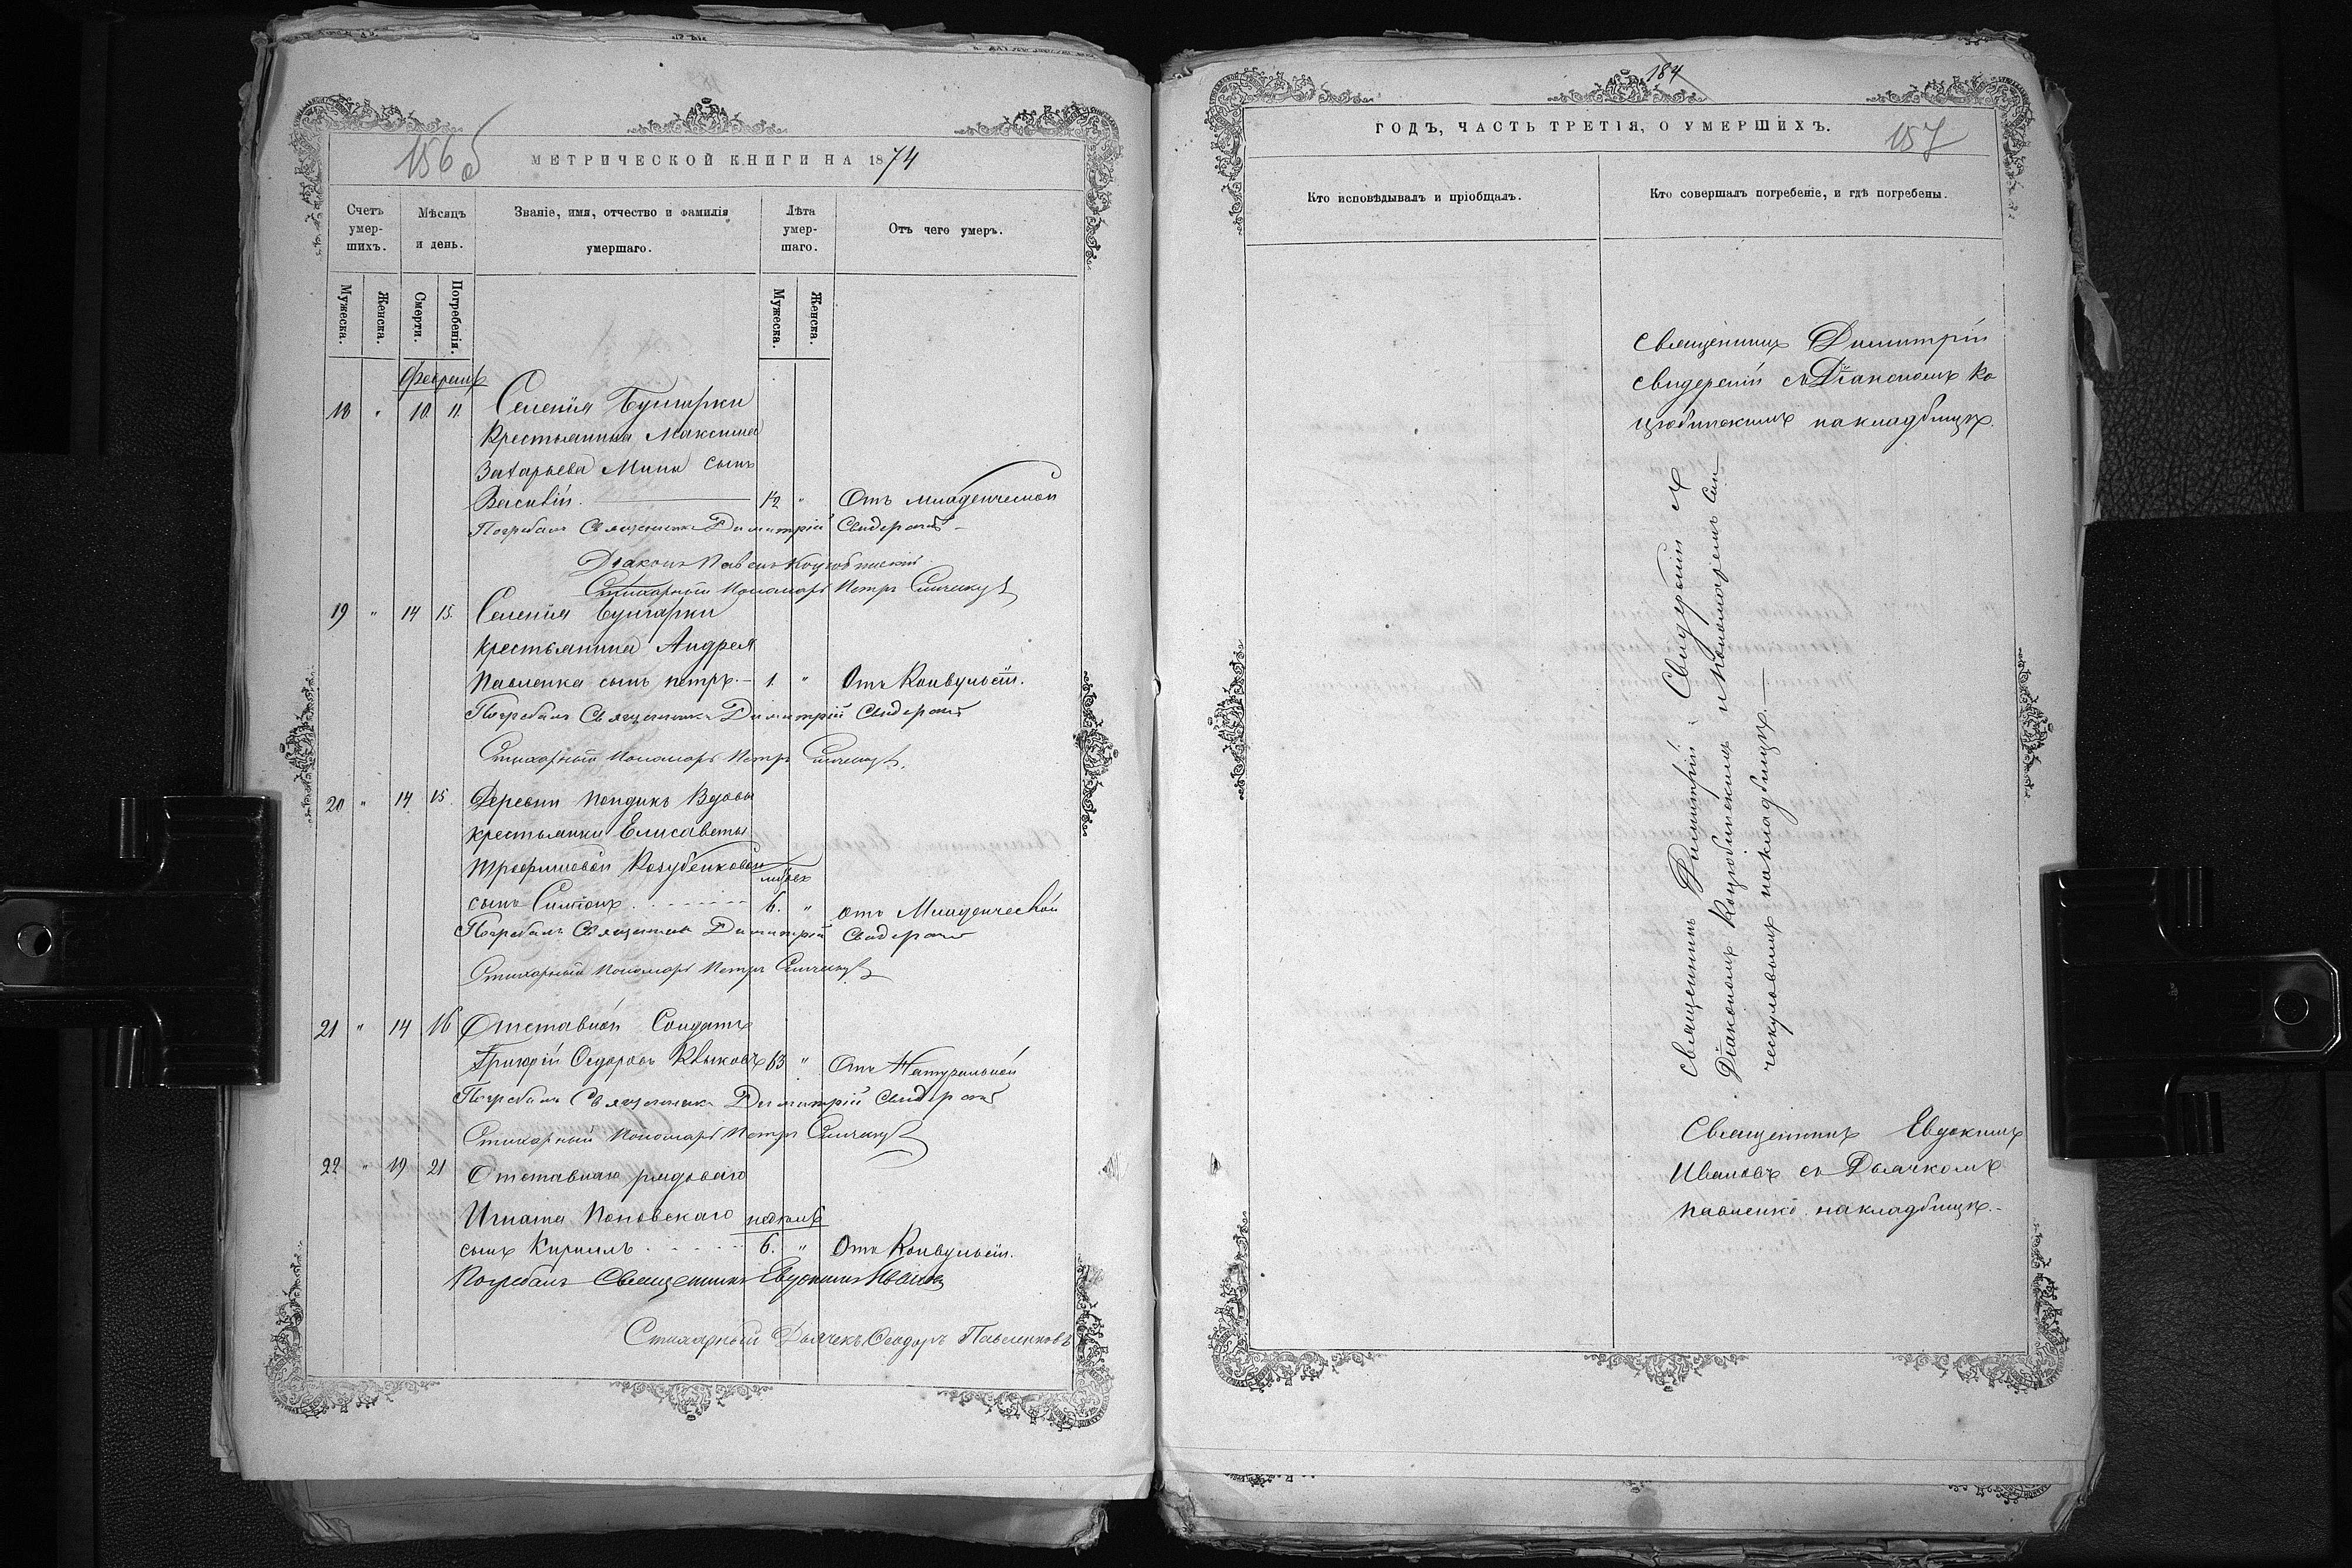 156 об
МЕТРИЧЕСКОЙ КНИГИ НА 1874
Счетъ умер-шихъ.
Мѣсяцъ и день.
Званіе, имя, отчество и фамилія умершаго.
Лѣта умер-шаго.
Отъ чего умеръ.
Мужеска.
Женска.
Смерти.
Погребенія.
Мужеска.
Женска.
Февраль
18 " 10. 11. Селенія Булгарки
Крестьянина Максима
Захарьева Мины сынъ
Василій. 12 " Отъ младенческой
Погребалъ Священникъ Димитрій Свидерскій
Діаконъ Павелъ Коцюбинскій
Стихарный Пономарь Петръ
19 " 14 15. Селенія Булгарки
крестьянина Андрея
Павленка сынъ петръ. - 1. " Отъ Конвульсій.
Погребалъ Священникъ Димитрій Свидерскій
Стихарный Пономарь Петръ
20 " 14 15. Деревни Пондикъ Вдовы
крестьянки Елисаветы
Трофимовой Козубенковой
сынъ Симеонъ 6. " отъ Младенческой
Погребалъ Священникъ Димитрій Свидерскій
Стихарный Пономарь Петръ
21 " 14 16 Отставной Солдатъ
Григорій Ѳедоровъ 63 " Отъ Натуральной
Погребалъ Священникъ Димитрій Свидерскій
Стихарный Пономарь Петръ
22 " 19 21 Отставнаго рядоваго
Игната Поповскаго недель
сынъ Кириллъ 6. " Отъ Конвульсій.
Погребалъ Священникъ Евдокимъ Ивановъ
Стихарный Дьячекъ Ѳеодоръ Павленковъ
184
ГОДЪ, ЧАСТЬ ТРЕТІЯ, О УМЕРШИХЪ.
157
Кто исповѣдывалъ и пріобщалъ.
Кто совершалъ погребеніе, и гдѣ погребены.
Священникъ Димитрій
Свидерскій съ Діакономъ Ко
цюбинскимъ накладбищѣ.
Священникъ Димитрій Свидерскій съ
Діакономъ Коцюбинскимъ и Пономаремъ Син
чекуловымъ накладбищѣ.
Священникъ Евдокимъ
Ивановъ съ Дьячкомъ
Павленко накладбищѣ.